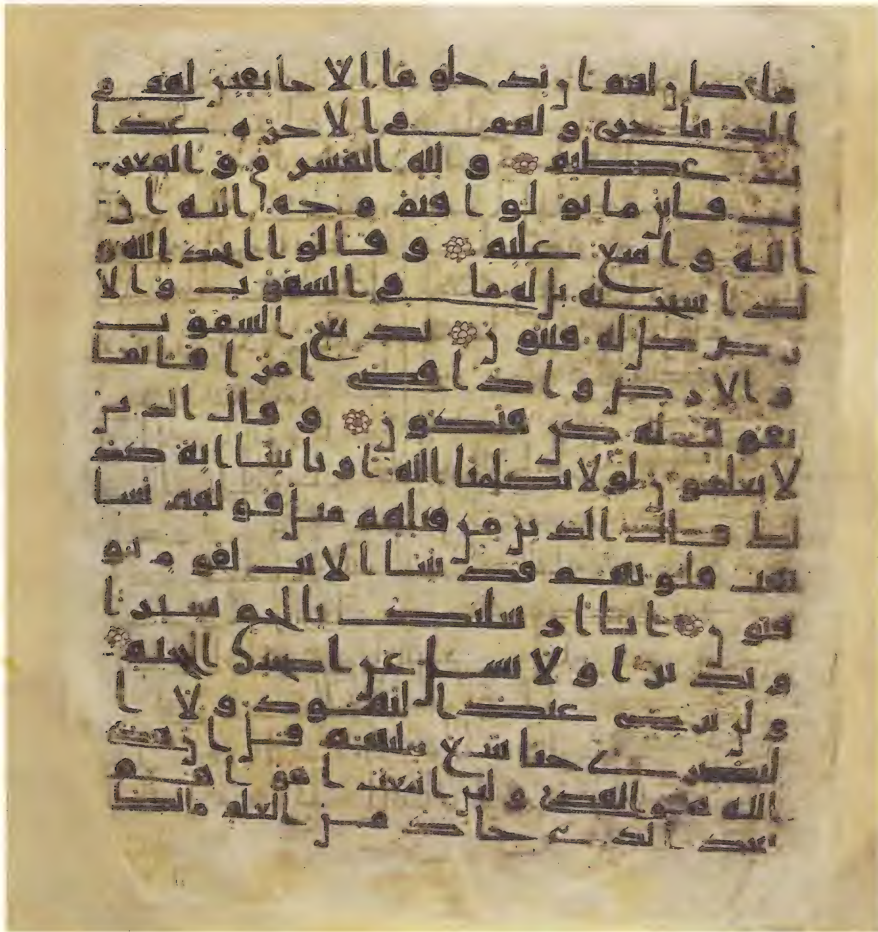 ما كان لهم ان يدخلوها الا خايفين لهم في
الدنيا خزي ولهم في الاخرة عذا
ب عظيم ولله المشرق والمغر
ب فاينما تولوا فثم وجه الله ان
الله واسع عليم وقالوا اتخذ الله و
لدا سبحنه بل له ما في السموت والا
رض كل له قنتون بديع السموت
والارض واذا قضى امرا فانما
يقول له كن فيكون وقال الذين
لا يعلمون لولا يكلمنا الله او تاتينا اية كذ
لك قال الذين من قبلهم مثل قولهم تشا
بهت قلوبهم قد بينا الايت لقوم يو
قنون انا ارسلنك بالحق بشيرا
ونذيرا ولا تسل عن اصحب الجحيم
ولن ترضى عنك اليهود ولا ا
لنصرى حتى تتبع ملتهم قل ان هدى
الله هو الهدى ولين اتبعت اهواهم
بعد الذي جاك من العلم ما لك